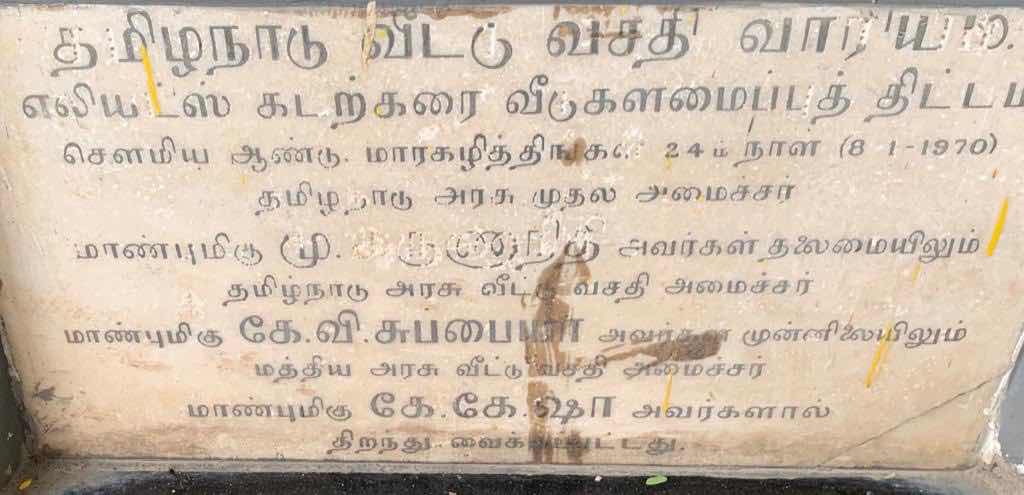 தமிழ்நாடு வீட்டு வசதி வாரியம்.
எலியட்ஸ் கடற்கரை வீடுகளமைப்புத் திட்டம்
சௌமிய ஆண்டு, மார்கழித்திங்கள் 24ம் நாள் (8 1-1970)
தமிழ்நாடு அரசு முதல் அமைச்சர்
மாண்புமிகு மு. கருணாநிதி அவர்கள் தலைமையிலும்
தமிழ்நாடு அரசு வீட்டு வசதி அமைச்சர்
மாண்புமிகு கே.வி.சுப்பையா அவர்கள் முன்னிலையிலும்
மத்திய அரசு வீட்டு வசதி அமைச்சர்
மாண்புமிகு கே.கே.ஷா அவர்களால்
திறந்து வைக்கப்பட்டது.